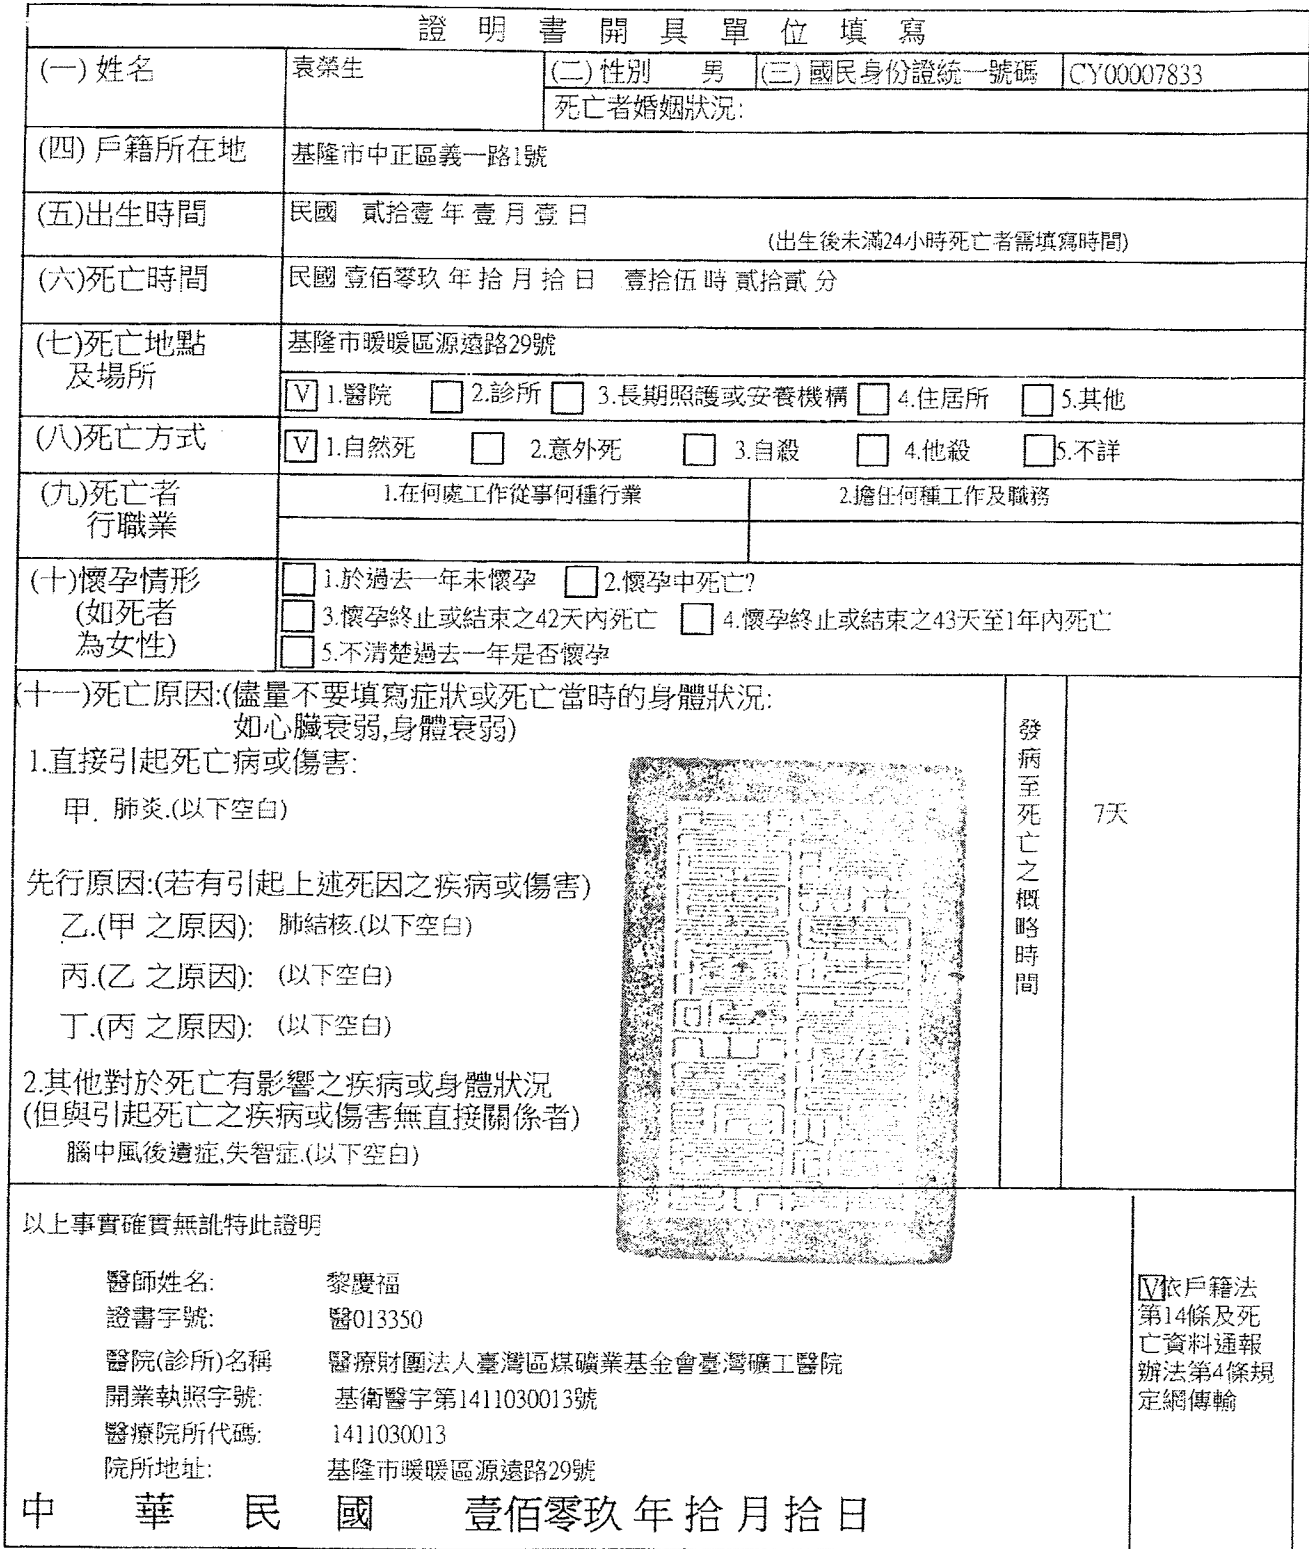 證明書開具單位填寫
(一)姓名 袁榮生 (二)性別 男 (三)國民身份證統一號碼 CY00007833
死亡者婚姻狀況:
(四)戶籍所在地 基隆市中正區義一路1號
(五)出生時間 民國 貳拾壹 年 壹 月 壹 日
(出生後未滿24小時死亡者需填寫時間)
(六)死亡時間 民國 壹佰零玖 年 拾 月 拾 日 壹拾伍 時 貳拾貳 分
(七)死亡地點 基隆市暖暖區源遠路29號
及場所 V 1.醫院 2.診所 3.長期照護或安養機構 4.住居所 5.其他
(八)死亡方式 V 1.自然死 2.意外死 3.自殺 4.他殺 5.不詳
(九)死亡者 1.在何處工作從事何種行業 2.擔任何種工作及職務
行職業
(十)懷孕情形 1.於過去一年未懷孕 2.懷孕中死亡?
(如死者 3.懷孕終止或結束之42天內死亡 4.懷孕終止或結束之43天至1年內死亡
為女性) 5.不清楚過去一年是否懷孕
(十一)死亡原因:(儘量不要填寫症狀或死亡當時的身體狀況:
如心臟衰弱,身體衰弱)
1.直接引起死亡病或傷害:
甲. 肺炎.(以下空白)
先行原因:(若有引起上述死因之疾病或傷害)
乙.(甲 之原因): 肺結核.(以下空白)
丙.(乙 之原因): (以下空白)
丁.(丙 之原因): (以下空白)
2.其他對於死亡有影響之疾病或身體狀況
(但與引起死亡之疾病或傷害無直接關係者)
腦中風後遺症,失智症.(以下空白)
發病至死亡之概略時間
7天
以上事實確實無訛特此證明
醫師姓名: 黎慶福
證書字號: 醫013350
醫院(診所)名稱 醫療財團法人臺灣區煤礦業基金會臺灣礦工醫院
開業執照字號: 基衛醫字第1411030013號
醫療院所代碼: 1411030013
院所地址: 基隆市暖暖區源遠路29號
V依戶籍法
第14條及死
亡資料通報
辦法第4條規
定網傳輸
中華民國 壹佰零玖 年 拾 月 拾 日